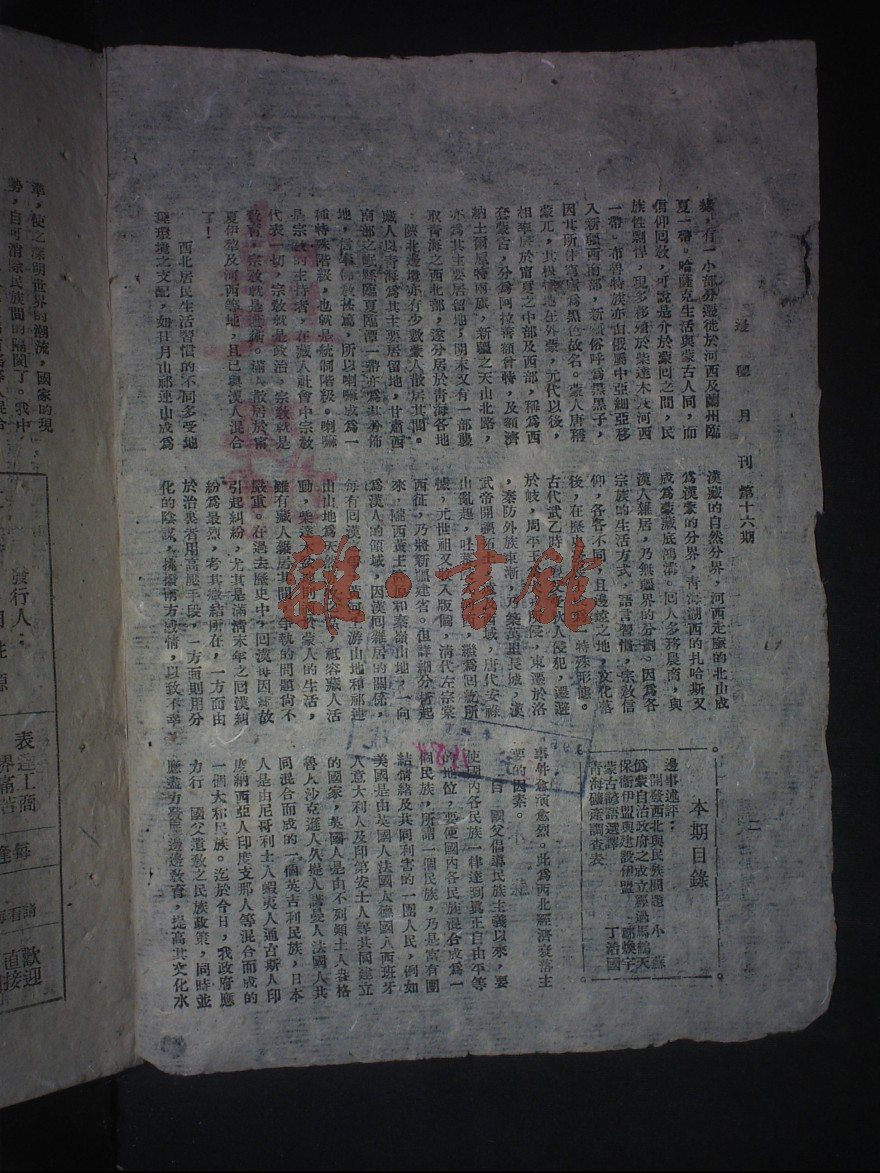 邊疆月刊 第十六期
二
緣，有一小部分遷徙於河西及蘭州臨
夏一帶。哈薩克生活與蒙古人同，而
信仰回教，可說是介於蒙回之間，民
族性剽悍，現多移殖於柴達木及河西
一帶。布魯特族亦由俄屬中亞細亞移
入新疆西南部，新疆俗呼為黑黑子，
因其所住嵩嵩為黑色故名。蒙人唐稱
蒙兀，其根據地在外蒙，元代以後，
相率居於甯夏之中部及西部，稱為西
套蒙古，分為阿拉善額魯特，及額濟
納土爾扈特兩旗，新疆之天山北路，
亦為其主要居留地，明末又有一部襲
取青海之西北部，遂分居於青海各地
陝北邊境亦有少數蒙人散居其間。
藏人以青海為其主要居留地，甘肅西
南部之岷縣臨夏臨潭一帶亦為其分佈
地，信奉佛教甚篤，所以喇嘛成為一
種特殊階級，也就是統制階級。喇嘛
是宗教的主持者，在藏人社會中宗教
代表一切，宗教就是政治，宗教就是
教育，宗教就是藝術。滿人散居於甯
夏伊犂及河西等地，且已與漢人混合
了！
西北居民生活習慣的不同多受地
理環境之支配，如日月山祁連山成為
漢藏的自然分界，河西走廊的北山成
為漢蒙的分界，青海湖西的扎哈斯又
成為蒙藏底鴻溝。回人多務農商，與
漢人雜居，乃無疆界的分劃。因為各
宗族的生活方式，語言習慣，宗教信
仰，各各不同，且邊遠之地，文化落
後，在歷史 特殊形態。
古代武乙時 狄人侵犯，遷避
於岐，周平王 侵，東遷於洛
，秦防外族東漸，乃築萬里長城，漢
武帝開疆拓 西域，唐代安祿
山亂起，吐蕃 河西，繼為回紇所
據，元世祖又 入版圖，清代左宗棠
西征，乃將新疆建省。但詳細分析起
來，隴西黃土高原和秦嶺山地，一向
為漢人的領域，因漢回雜居的關係，
每有回漢之爭，黃河上游山地和祁連
山山地為天然 ，祗容藏人活
動，柴達木 於蒙人的生活，
雖有藏人雜居其間，爭執的問題尙不
嚴重。在過去歷史中，回漢每因細故
引起糾紛，尤其是滿清末年之回漢糾
紛為最烈，考其癥結所在，一方面由
於治吳者用高壓手段，一方面則用分
化的陰謀，挑撥兩方感情，以致不幸
本期目錄
邊事述評：
開發西北與民族問題 小 蘇
僞蒙自治政府之成立經過馬鶴天
保衛伊盟與建設伊盟 鄭煥宇
蒙古諺語選譯 丁治國
青海礦產調查表
事件愈演愈烈。此為西北經濟衰落主
要的因素。
自 國父倡導民族主義以來，要
使國內各民族一律達到眞正自由平等
的地位，要使國內各民族混合成為一
個民族，所謂一個民族，乃是富有團
結情緒及共同利害的一團人民，例如
美國是由英國人法國人德國人西班牙
人意大利人及印第安土人等共同建立
的國家，英國人是由不列顛土人盎格
魯人沙克遜人久是人諾曼人法國人共
同混合而成的一個英吉利民族，日本
人是由尼哥利土人蝦夷人通古斯人印
度納西亞人印度支那人等混合而成的
一個大和民族。迄於今日，我政府應
力行 國父遺敎之民族政策，同時並
應盡力發展邊疆敎育，提高其文化水
準，使之深明世界的潮流，國家的現
勢，自可消除民族間的隔閡了。我中
發行人：
表達工商
界痛苦
歡迎
直接
雜·書館